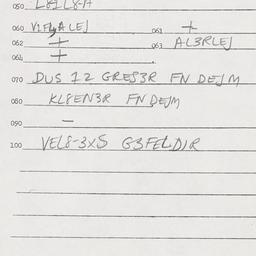 050 L8IL8-A
060 VIFLALEJ 061 +
062 + 063 AL3RLEJ
064 +
070 DUS 12 GRES3R FN DEJM
080 KL8EN3R FN DEJM
090 -
100 VEL8-3XS G3FELDIR